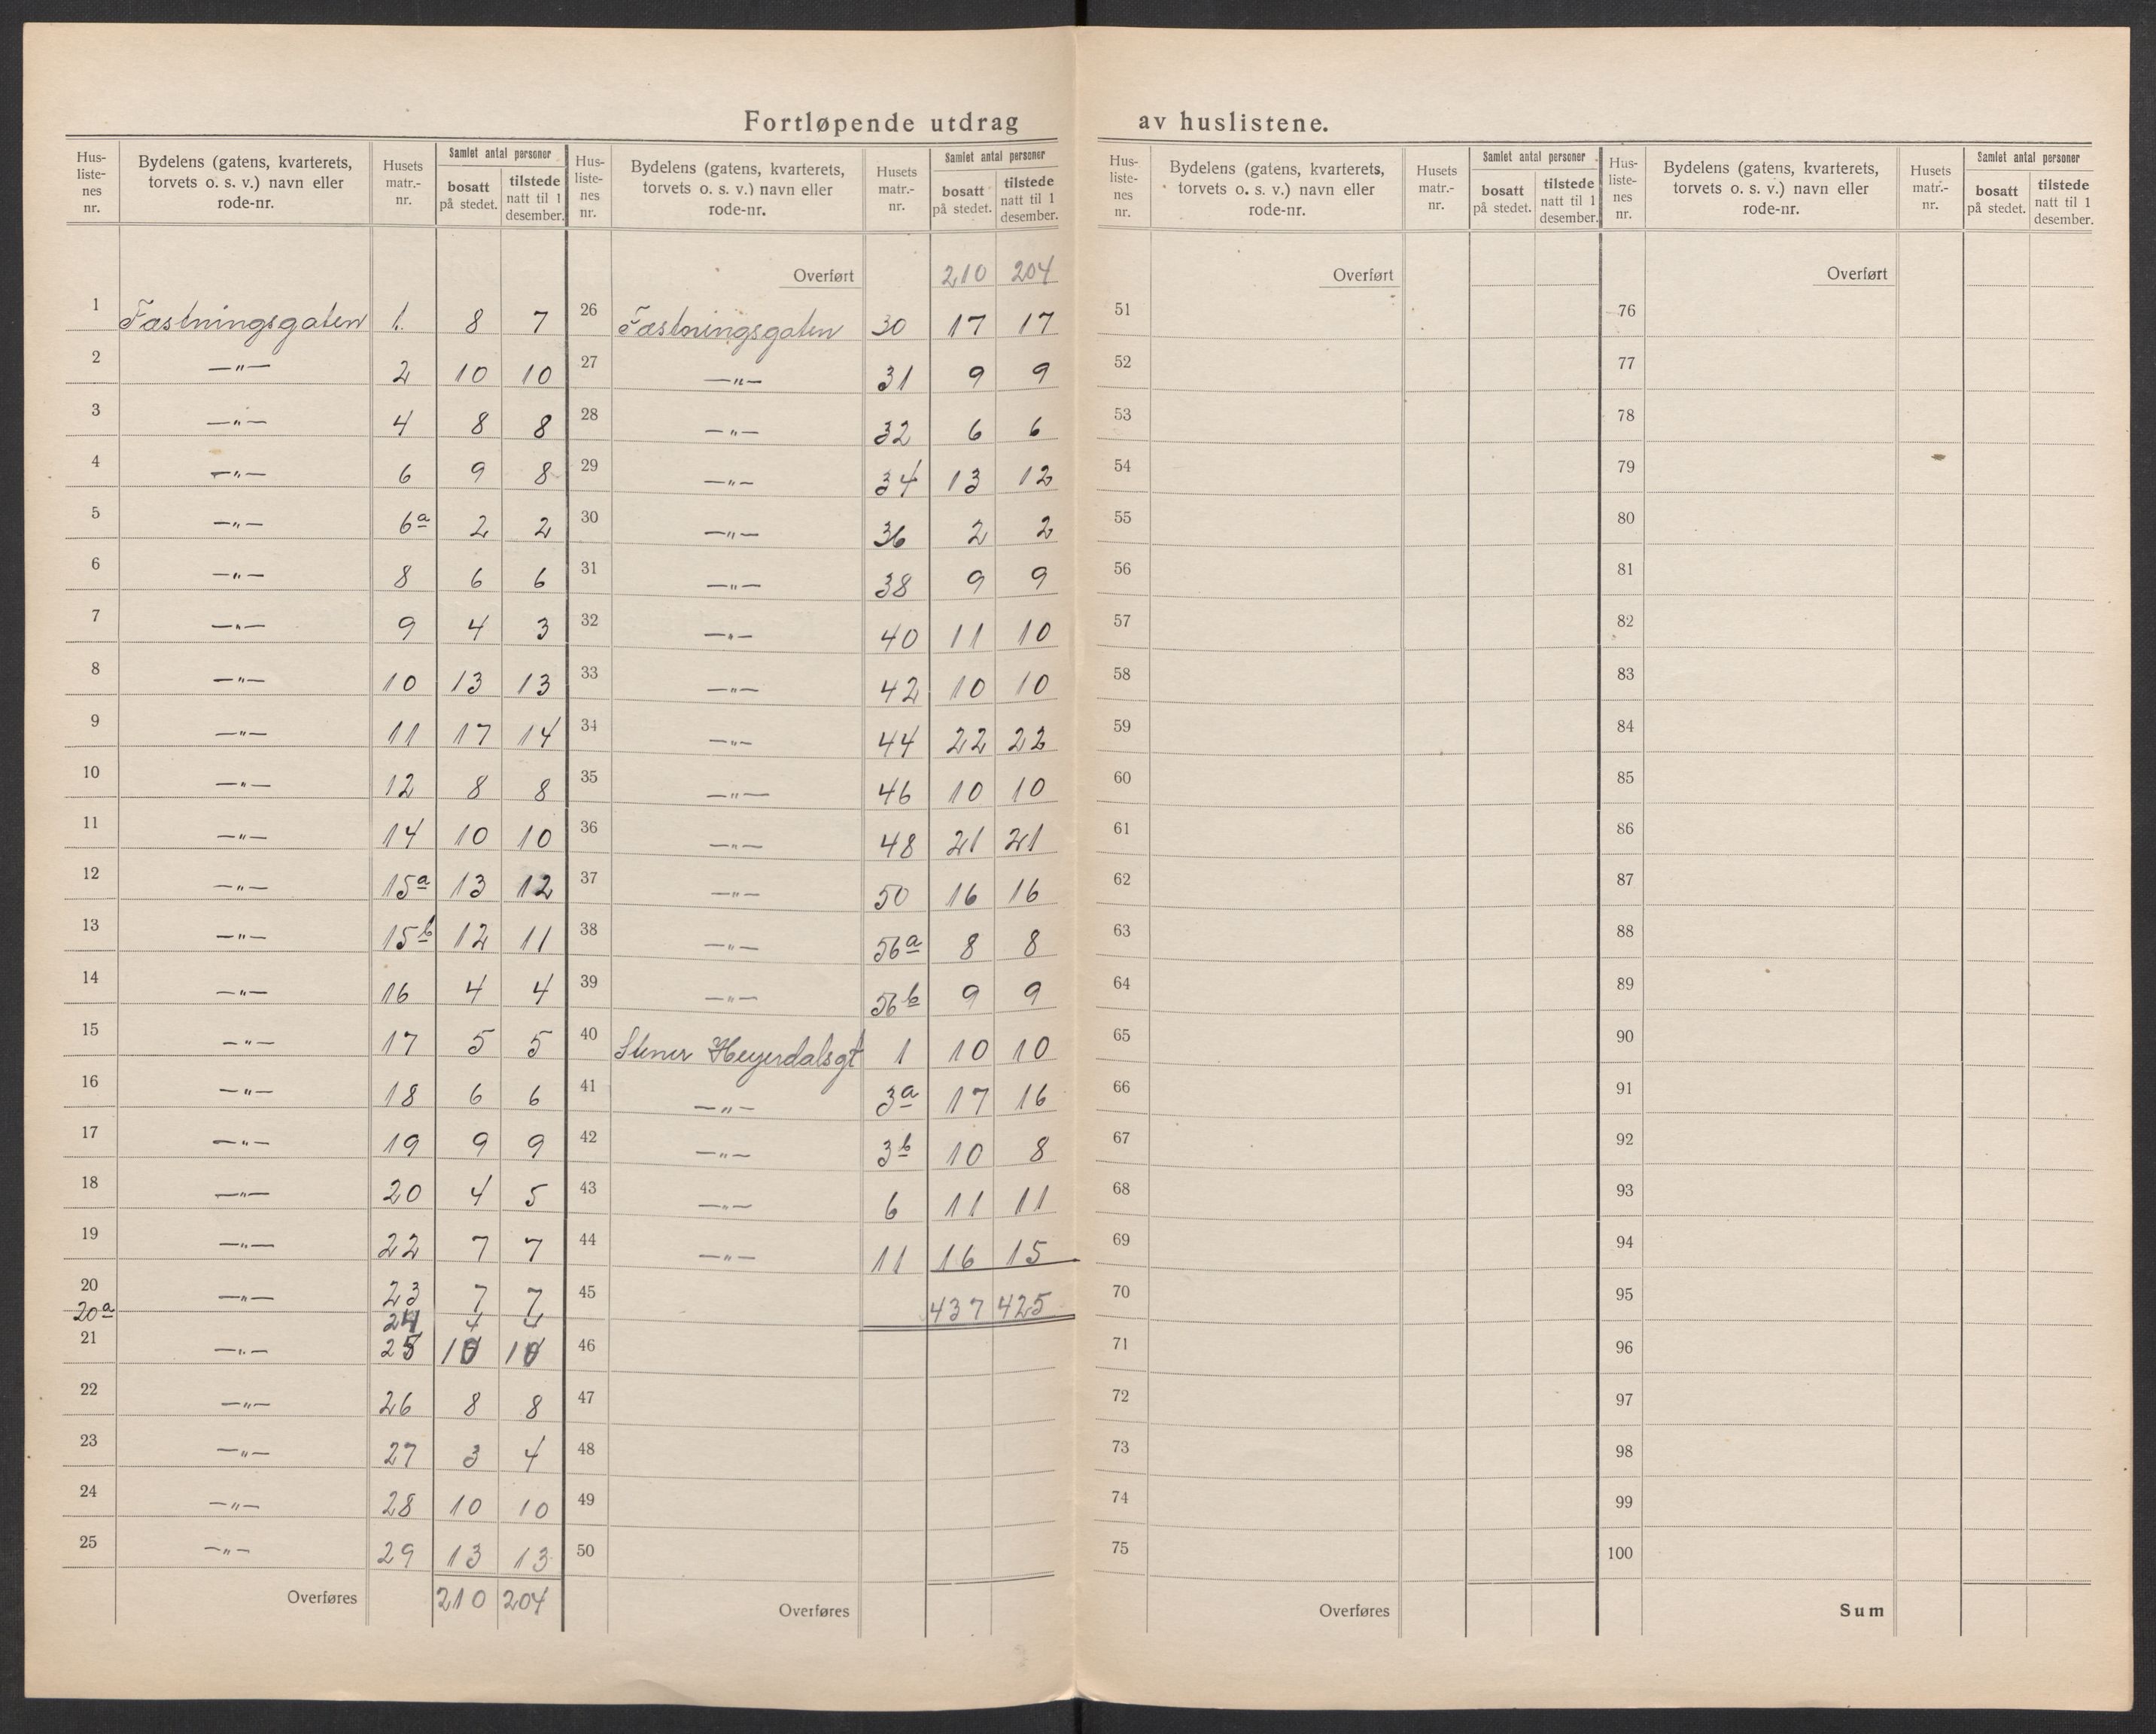 Fortløpende utdrag av huslistene.
Hus-listenes nr. | Bydelens (gatens, kvarterets, torvets o. s. v.) navn eller rode-nr. | Husets matr.-nr. | Samlet antal personer | bosatt på stedet. | tilstede natt til 1 desember.
1 Fæstningsgaten 1. 8 7
2 —"— 2 10 10
3 —"— 4 8 8
4 —"— 6 9 8
5 —"— 6a 2 2
6 —"— 8 6 6
7 —"— 9 4 3
8 —"— 10 13 13
9 —"— 11 17 14
10 —"— 12 8 8
11 —"— 14 10 10
12 —"— 15a 13 12
13 —"— 15b 12 11
14 —"— 16 4 4
15 —"— 17 5 5
16 —"— 18 6 6
17 —"— 19 9 9
18 —"— 20 4 5
19 —"— 22 7 7
20 —"— 23 7 7
20a 24 4 4
21 —"— 25 10 10
22 —"— 26 8 8
23 —"— 27 3 4
24 —"— 28 10 10
25 —"— 29 13 13
Overføres 210 204
Hus-listenes nr. | Bydelens (gatens, kvarterets, torvets o. s. v.) navn eller rode-nr. | Husets matr.-nr. | Samlet antal personer | bosatt på stedet. | tilstede natt til 1 desember.
Overført 210 204
26 Fæstningsgaten 30 17 17
27 —"— 31 9 9
28 —"— 32 6 6
29 —"— 34 13 12
30 —"— 36 2 2
31 —"— 38 9 9
32 —"— 40 11 10
33 —"— 42 10 10
34 —"— 44 22 22
35 —"— 46 10 10
36 —"— 48 21 21
37 —"— 50 16 16
38 —"— 56a 8 8
39 —"— 56b 9 9
40 Stener Heyerdalsgt 1 10 10
41 —"— 3a 17 16
42 —"— 3b 10 8
43 —"— 6 11 11
44 —"— 11 16 15
45 437 425
46
47
48
49
50
Overføres
Hus-listenes nr. | Bydelens (gatens, kvarterets, torvets o. s. v.) navn eller rode-nr. | Husets matr.-nr. | Samlet antal personer | bosatt på stedet. | tilstede natt til 1 desember.
Overført
51
52
53
54
55
56
57
58
59
60
61
62
63
64
65
66
67
68
69
70
71
72
73
74
75
Overføres
Hus-listenes nr. | Bydelens (gatens, kvarterets, torvets o. s. v.) navn eller rode-nr. | Husets matr.-nr. | Samlet antal personer | bosatt på stedet. | tilstede natt til 1 desember.
Overført
76
77
78
79
80
81
82
83
84
85
86
87
88
89
90
91
92
93
94
95
96
97
98
99
100
Sum